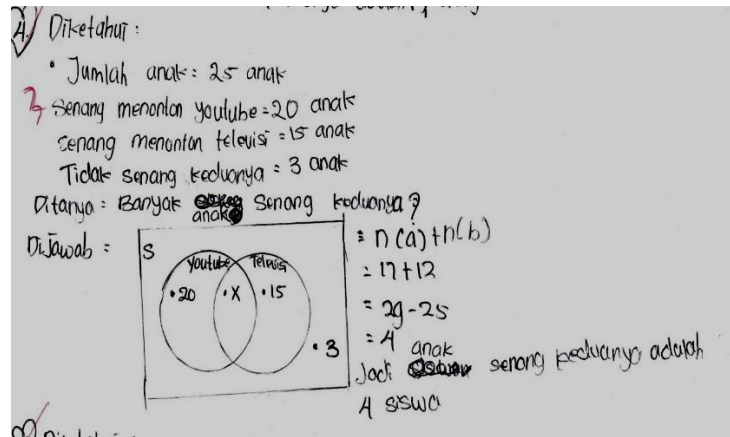 4. Diketahui :
• Jumlah anak = 25 anak
Senang menonton youtube = 20 anak
Senang menonton televisi = 15 anak
Tidak senang keduanya = 3 anak
Ditanya : Banyak anak senang keduanya ?
Dijawab :
S
Youtube Televisi
• 20 • X • 15
• 3
= n(a) + n(b)
= 17 + 12
= 29 - 25
= 4 anak
Jadi senang keduanya adalah
4 siswa